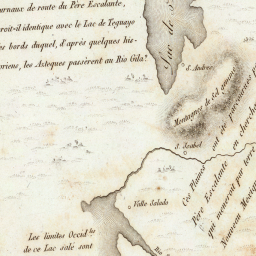 urnaux de route du Père Escalante,
roit-il identique avec le Lac de Teguayo
es bords duquel, d'après quelques his-
oriens, les Aztèques passèrent au Rio Gila?
Lac de S
S. Andres
Montagnes de Sel gemme
S. Isabel
Ces Plaines
ont été parcourues p
Père Escalante
en cherchan
qui menerait par terre
Nouveau Mexiqu
Valle Salado
Les limites Occid.les
de ce Lac salé sont
Rio